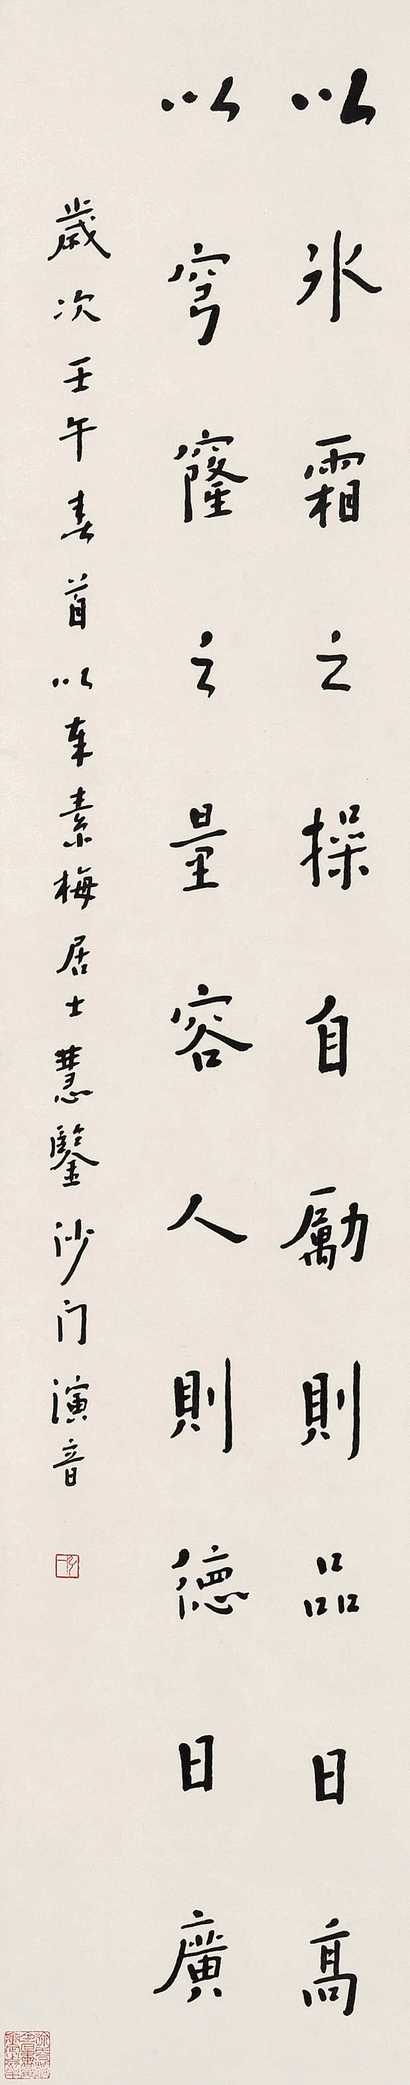 以冰霜之操自勵則品日高
以穹窿之量容人則德日廣
歲次壬午春首以奉素梅居士慧鑒沙门演音